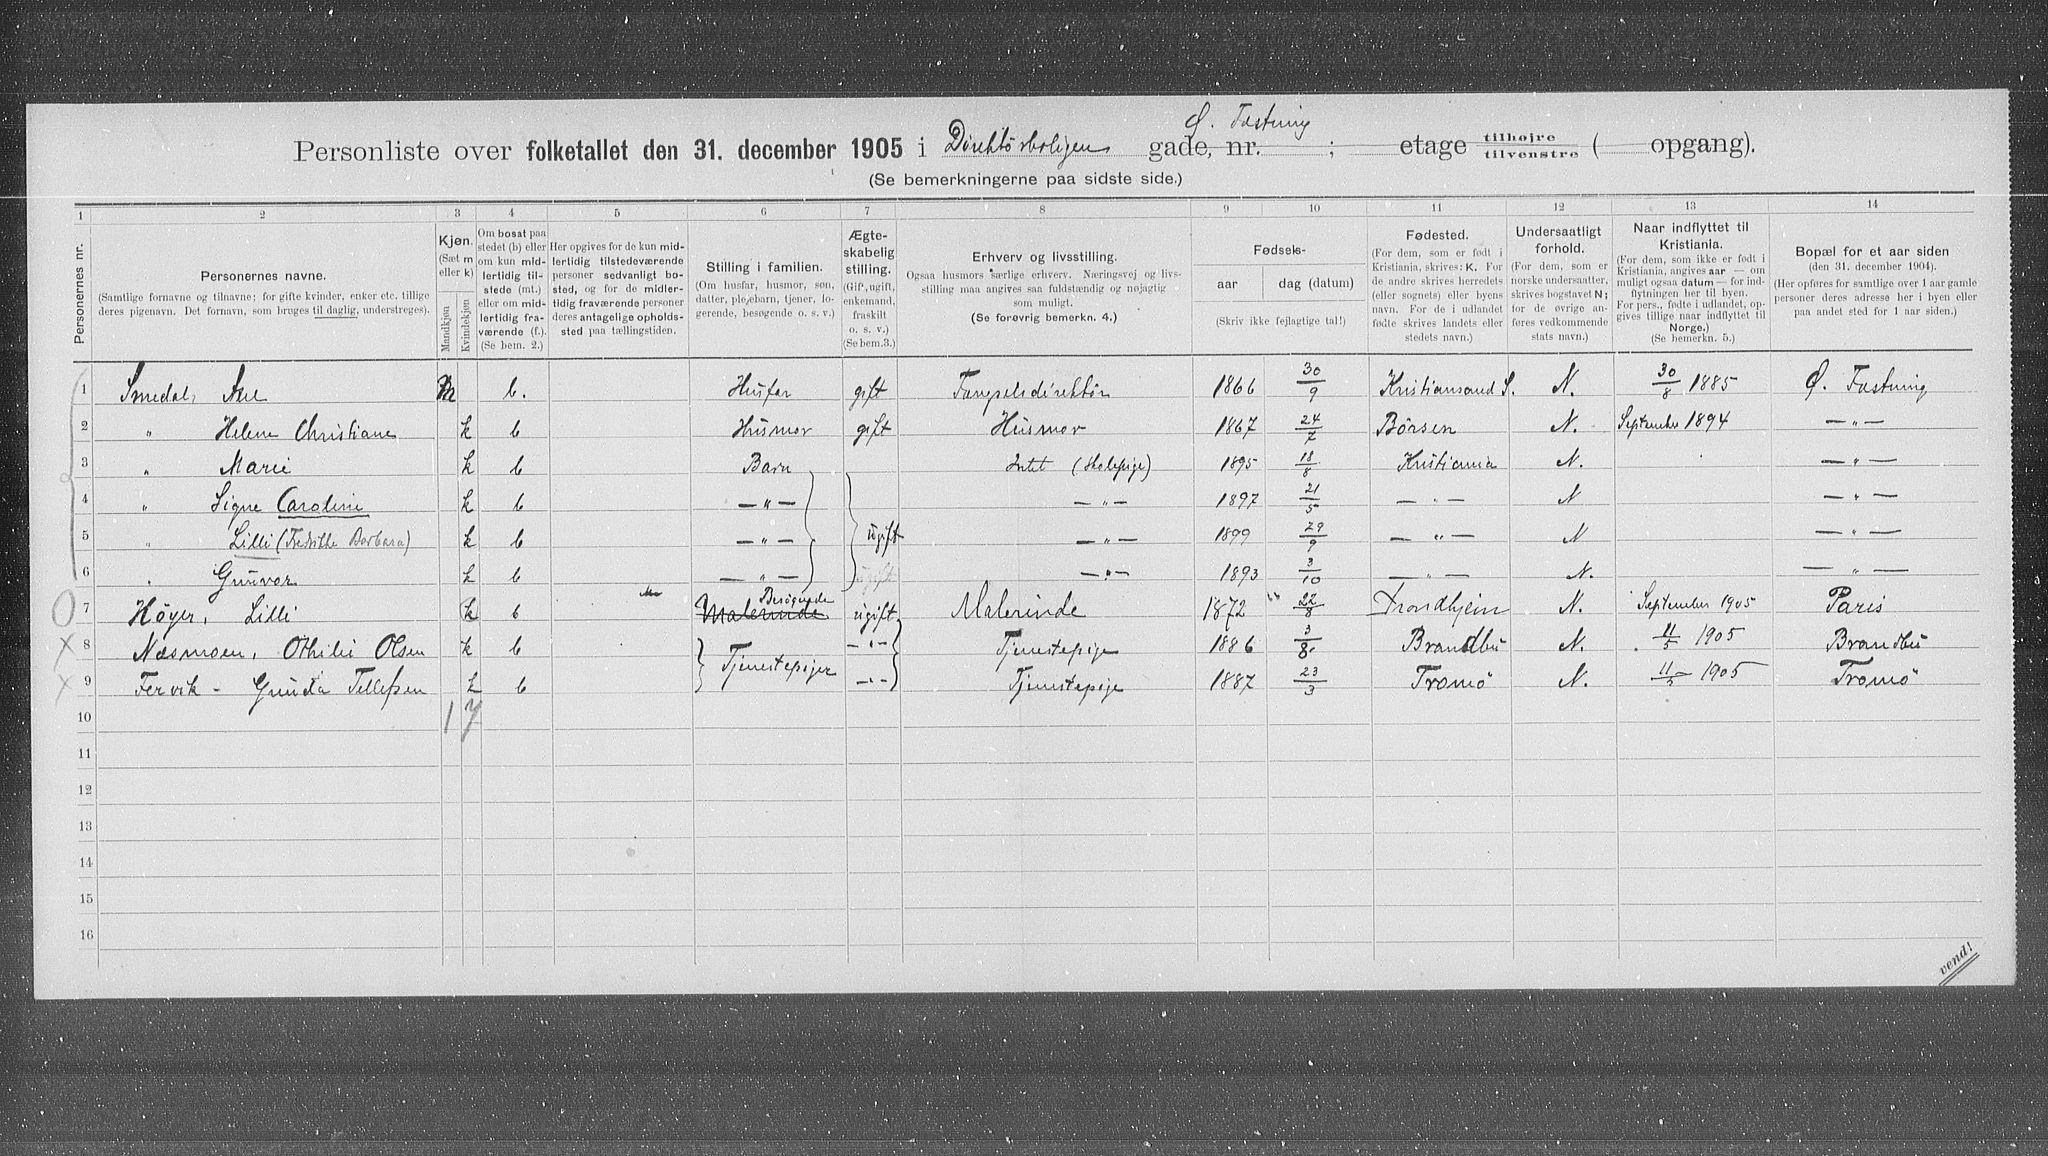 Ø. Fæstning
Personliste over folketallet den 31. december 1905 i Direktørboligen gade, nr. ; etage tilhøjre tilvenstre ( opgang).
(Se bemerkningerne paa sidste side.)
1 2 3 4 5 6 7 8 9 10 11 12 13 14
Personernes nr.
Personernes navne.
(Samtlige fornavne og tilnavne; for gifte kvinder, enker etc. tillige
deres pigenavn. Det fornavn, som bruges til daglig, understreges).
Kjøn.
(Sæt m
eller k)
Mandkjøn
Kvindekjøn
Om bosat paa
stedet (b) eller
om kun mid-
lertidig til-
stede (mt.)
eller om mid-
lertidig fra-
værende (f.).
(Se bem. 2.)
Her opgives for de kun mid-
lertidig tilstedeværende
personer sedvanligt bo-
sted, og for de midler-
tidig fraværende personer
deres antagelige opholds-
sted paa tællingstiden.
Stilling i familien.
(Om husfar, husmor, søn,
datter, plejebarn, tjener, lo-
gerende, besøgende o. s. v.)
Ægte-
skabelig
stilling.
(Gift, ugift,
enkemand,
fraskilt
o. s. v.)
(Se bem.3.)
Erhverv og livsstilling.
Ogsaa husmors særlige erhverv. Næringsvej og livs-
stilling maa angives saa fuldstændig og nøjagtig
som muligt.
(Se forøvrig bemerkn. 4.)
Fødsels-
aar dag (datum)
(Skriv ikke fejlagtige tal!)
Fødested.
(For dem, som er født i
Kristiania, skrives: K. For
de andre skrives herredets
(eller sognets) eller byens
navn. For de i udlandet
fødte skrives landets eller
stedets navn.)
Undersaatligt
forhold.
(For dem, som er
norske undersaatter,
skrives bogstavet N;
for de øvrige an-
føres vedkommende
stats navn.)
Naar indflyttet til
Kristiania.
(For dem, som ikke er født i
Kristiania, angives aar — om
muligt ogsaa datum — for ind-
flytningen her til byen.
For pers., fødte i udlandet, op-
gives tillige naar indflyttet til
Norge.)
(Se bemerkn. 5.)
Bopæl for et aar siden
(den 31. december 1904).
(Her opføres for samtlige over 1 aar gamle
personer deres adresse her i byen eller
paa andet sted for 1 aar siden.)
1 Smedal, Axel m b. Husfar gift Fængselsdirektør 1866 30/9 Kristianssand S. N. 30/8 1885 Ø. Fæstning
2 " Helene Christiane k b Husmor gift Husmor 1867 24/7 Børsen N. September 1894 — " —
3 " Marie k b Barn Intet (Skolepige) 1895 18/8 Kristiania N. — " —
4 " Signe Caroline k b — " — — " — 1897 21/5 — " — N — " —
5 " Lilli (Fredrikke Barbara) k b — " — ugift — " — 1899 29/9 — " — N — " —
6 " Gunvor k b — " — ugift — " — 1893 3/10 — " — N. — " —
7 Høyer, Lilli k b Malerinde Besøgende ugift Malerinde 1872 22/8 Trondhjem N. September 1905 Paris
8 Næsmoen, Othilie Olsen k b Tjenestepiger — " — Tjenestepige 1886 3/8 Brandbu N. 11/5 1905 Brandbu
9 Fervik - Gunda Tellefsen k b — " — Tjenestepige 1887 23/3 Tromø N. 11/5 1905 Tromø
10 1 7
11
12
13
14
15
16
vend!